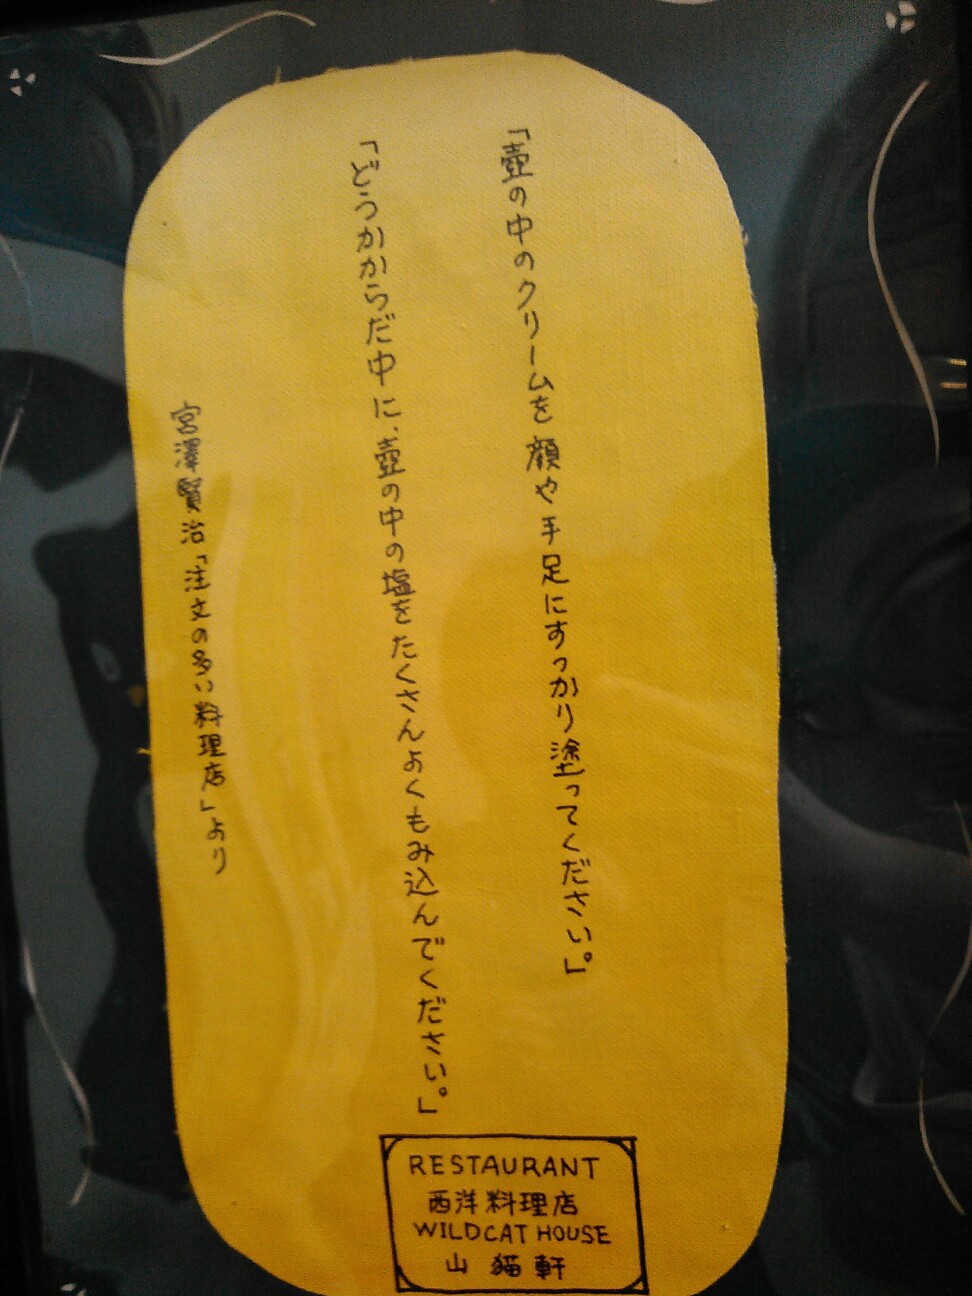 「壺の中のクリームを顔や手足にすっかり塗ってください。」
「どうかからだ中に、壺の中の塩をたくさんよくもみ込んでください。」
宮澤賢治「注文の多い料理店」より
RESTAURANT
西洋料理店
WILDCAT HOUSE
山猫軒